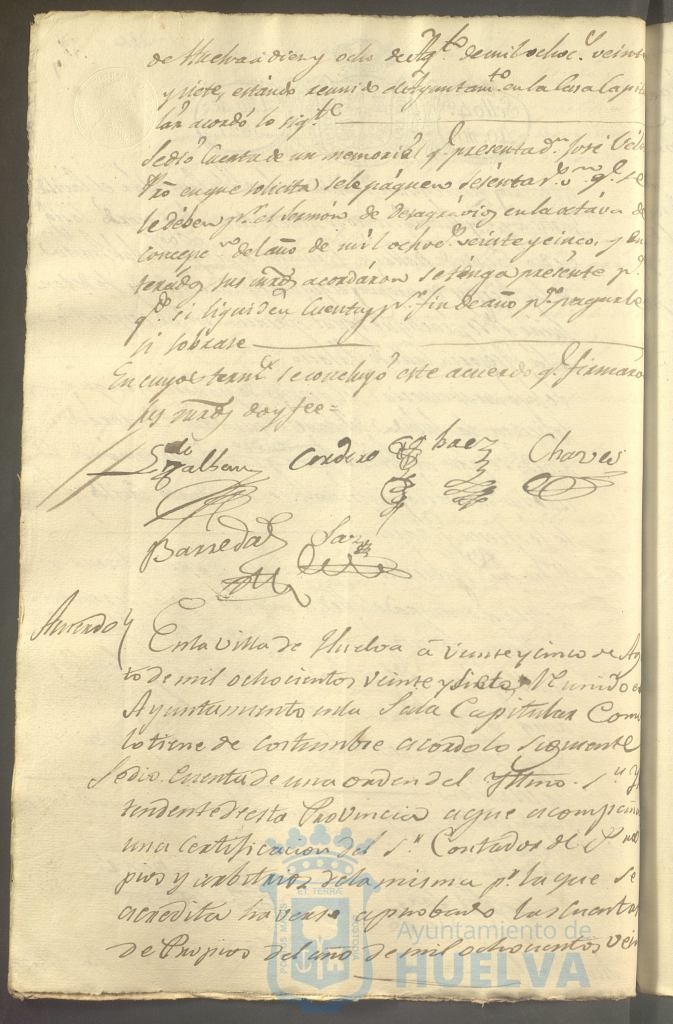 de Huelva a diez y ocho de Agto. de mil ochoc.s veinte
y siete, estando reunido el Ayuntamto. en la Casa Capitu
lar acordó lo sigte.
Se dió Cuenta de un memorial q.e presenta d.n José
Pro en que solicita se le páguen sesenta r.s v.n q.e se
le dében p.r el Sermón de Desagrávios en la octáva de
Concepc.on del año de mil ochoc.s veinte y cinco, y En
terádos sus mrds acordáron se ténga presénte p.a
q.do si liquiden Cuentas p.r fin de año p.a pagarle
si sobrase
En cuyos térms. se concluyó este acuerdo q.e firmáron
sus mrds doy fee =
Cordero Baez Chaves
Barreda
Acuerdo
En la Villa de Huelva á veinte y cinco de Ag
to de mil ochocientos veinte y siete, Reunido el
Ayuntamiento en la Sala Capitular Como
lo tiene de costumbre acordo lo siguiente
Se dio Cuenta de una orden del Yltmo. S.or Yn
tendente de esta Provincia a que acompaña
una Certificacion del S.r Contador de Pro
pios y arbitrios de la misma p.r la que se
acredita haverse aprobado las Cuentas
de Propios del año de mil ochocientos vein
PORTUS MARIS
ET TERRÆ
CUSTODIA
Ayuntamiento de
HUELVA